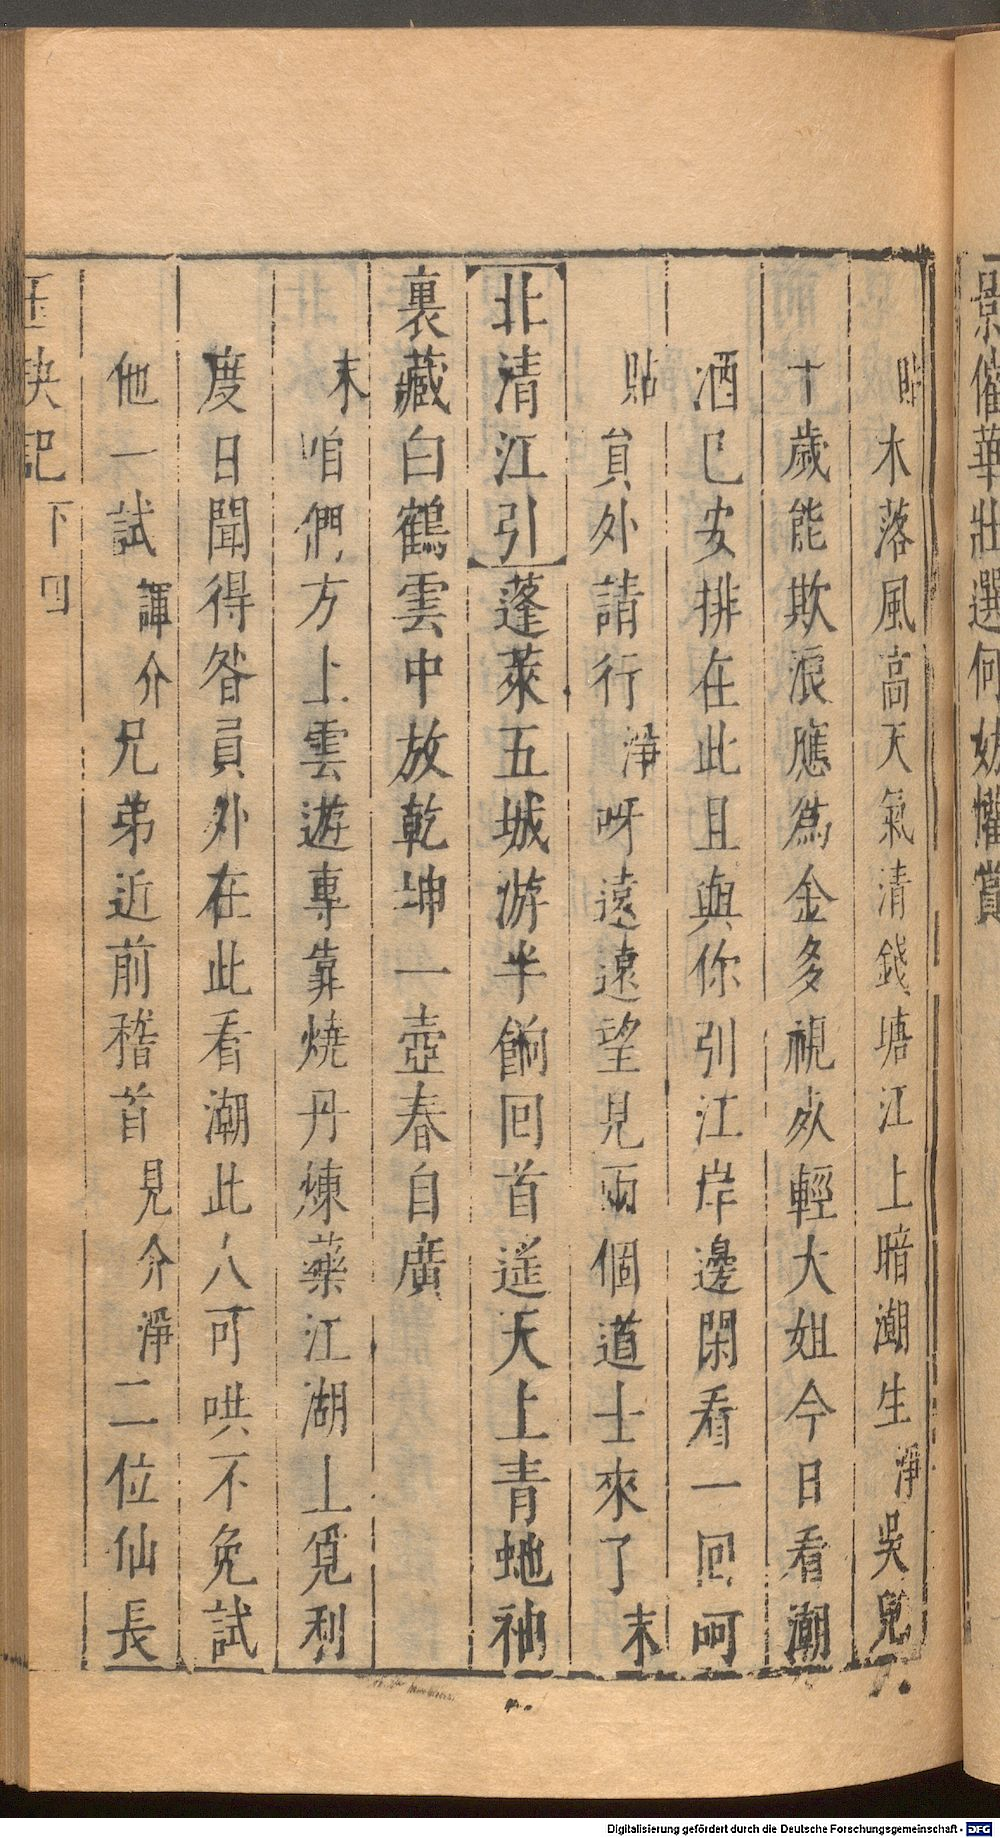 景催華壯選何妨懽賞
貼木落風高天氣清錢塘江上暗潮生淨吳兒
十歲能欺浪應為金多視死輕大姐今日看潮
酒已安排在此且與你引江岸邊閑看一回呵
貼員外請行淨呀遠遠望見兩個道士來了末
北清江引蓬萊五城游半餉回首遥天上青虵袖
裏藏白鶴雲中放乾坤一壺春自廣
末咱們方上雲遊專靠燒丹煉藥江湖上覓利
度日聞得昝員外在此看潮此人可哄不免試
他一試諢介兄弟近前稽首見介淨二位仙長
玉玦記 下 四
Digitalisierung gefördert durch die Deutsche Forschungsgemeinschaft - DFG